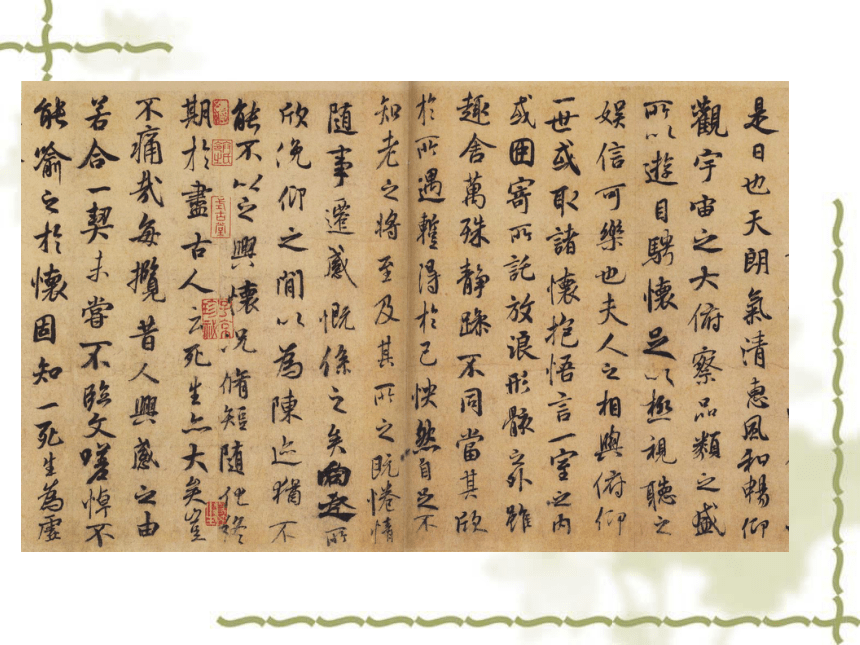 是日也天朗氣清惠風和暢仰
觀宇宙之大俯察品類之盛
所以遊目騁懷足以極視聽之
娛信可樂也夫人之相與俯仰
一世或取諸懷抱悟言一室之內
或因寄所託放浪形骸之外雖
趣舍萬殊靜躁不同當其欣
於所遇蹔得於己怏然自足不
知老之將至及其所之既惓情
隨事遷感慨係之矣向之所
欣俛仰之間以為陳迹猶不
能不以之興懷況脩短隨化終
期於盡古人云死生亦大矣豈
不痛哉每攬昔人興感之由
若合一契未嘗不臨文嗟悼不
能喻之於懷固知一死生為虛